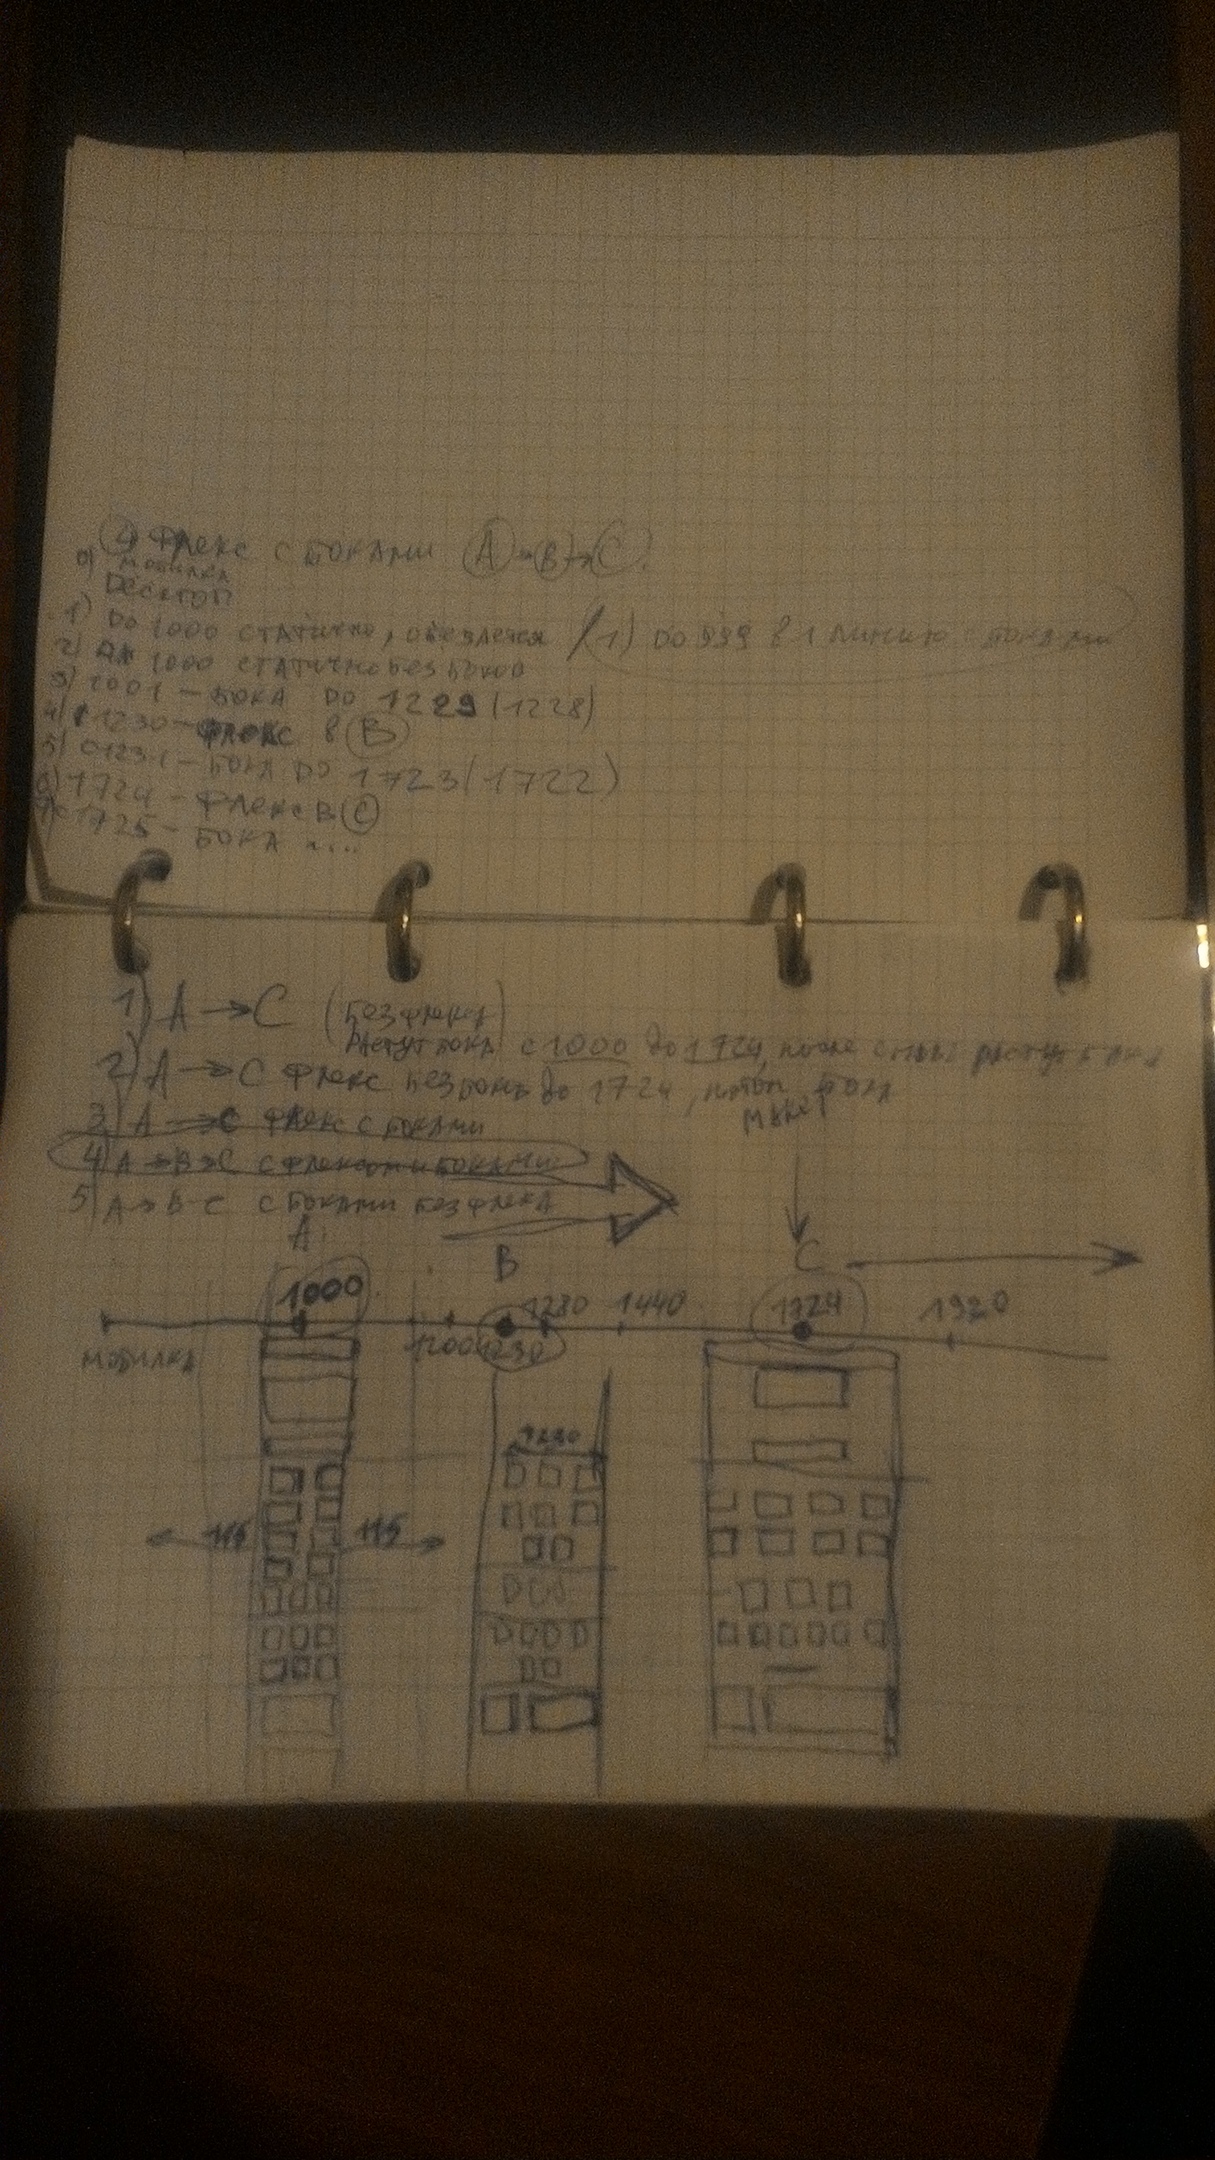 4) ФЛЕКС С БОКАМИ A → B → C.
0) МОБИЛКА
ДЕСКТОП
1) ДО 1000 СТАТИЧНО, ОБРЕЗАЕТСЯ (1) ДО 999 В 1 ЛИНИЮ С БОКАМИ
2) 1000 СТАТИЧНО БЕЗ БОКОВ
3) 1001 - БОКА ДО 1229 (1228)
4) 1230 - ФЛЕКС В B
5) С 1231 - БОКА ДО 1723 (1722)
6) 1724 - ФЛЕКС В C
7) С 1725 - БОКА ...
1) A → C (БЕЗ ФЛЕКСА)
РАСТУТ БОКА С 1000 до 1724, после снова растут бока
2) A → C ФЛЕКС БЕЗ до 1724, потом БОКА
3) A → C ФЛЕКС С БОКАМИ
4) A → B → C С ФЛЕКСОМ И БОКАМИ
5) A → B - C С БОКАМИ БЕЗ ФЛЕКСА
МАКЕТ
A
B
C
1000
1280
1440
1724
1920
МОБИЛКА
1200
1230
1230
115
115